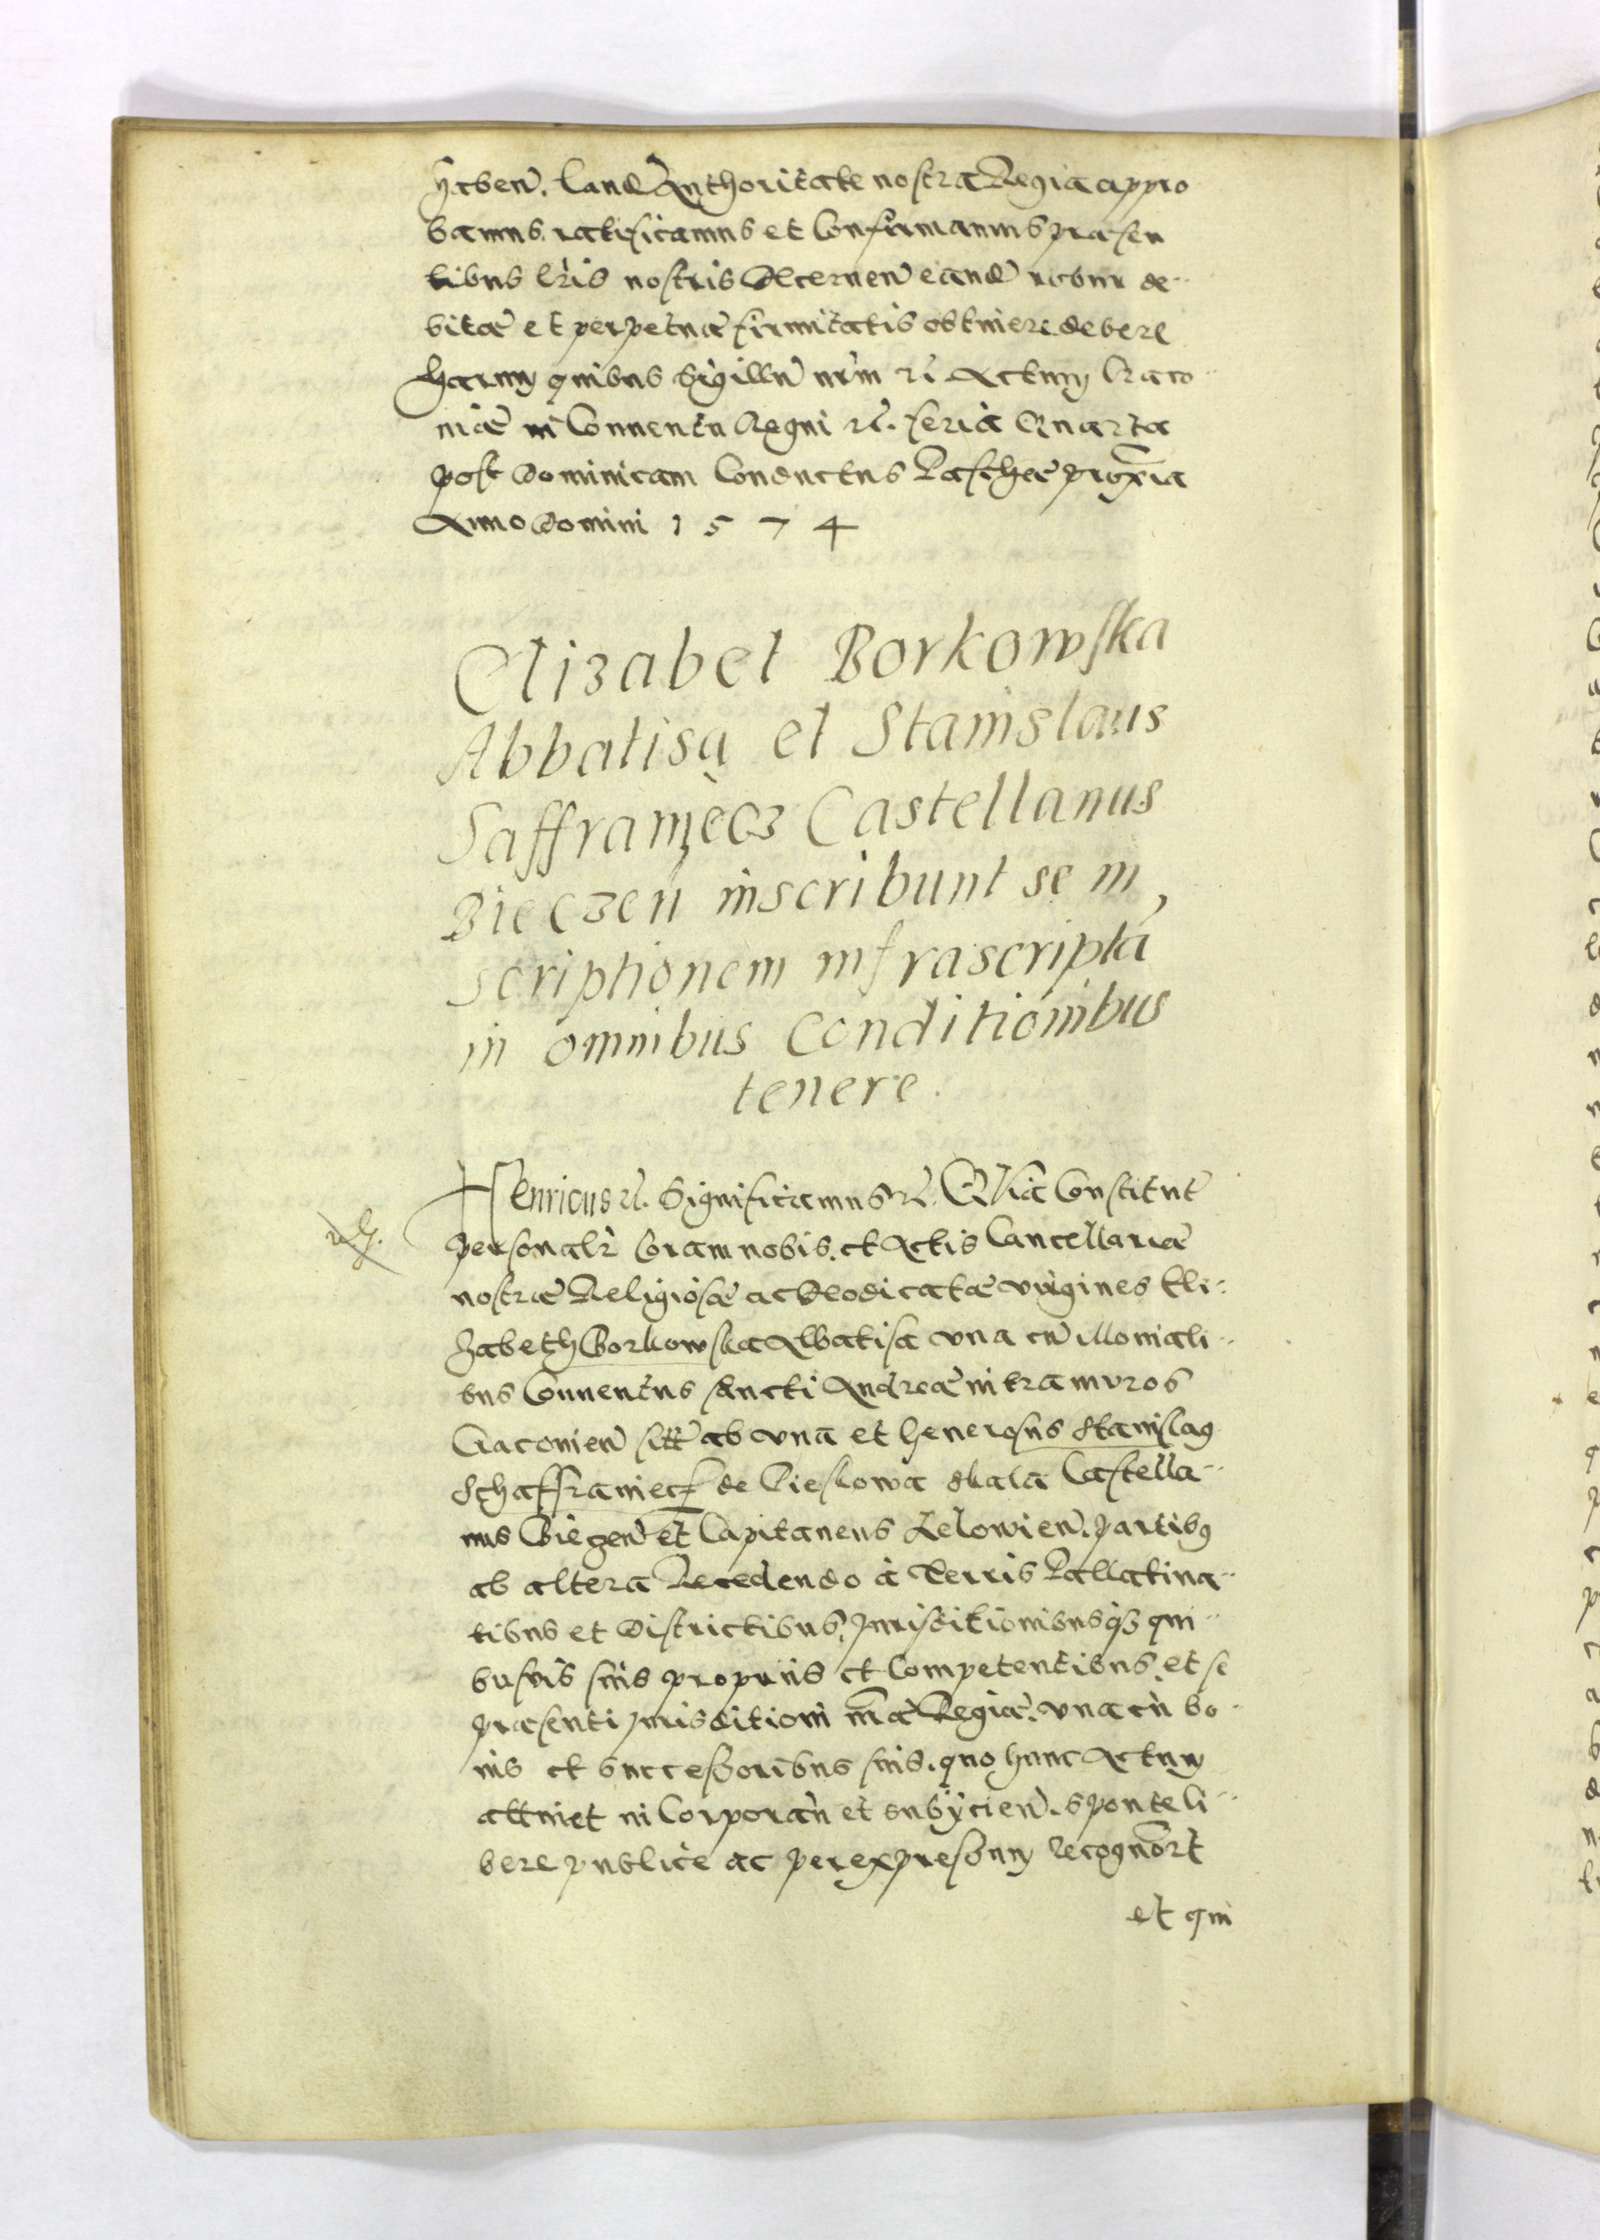 haben. Land Authoritate nostra Regia appro
bamus ratificamus et Confirmamus præsen
tibus lris nostris Decernen eand robur de-
bitæ et perpetuæ firmitatis obtinere debere
Harum quibus Sigillu nrm rc Actum Craco-
uiæ in Conuentu Regni rc. feria Quarta
post Dominicam Conductus Paschæ proxia
Anno Domini 1574
Elizabet Borkowska
Abbatisa et Stanislaus
Saffraniecz Castellanus
Bieczen inscribunt se in,
scriptionem infrascripta
in omnibus Conditionibus
tenere.
Henricus rc. Significamus rc. Quia Constitut
personalr Coram nobis. et Actis Cancellariæ
nostræ Religiosæ ac Deodicatæ virgines Eli-
zabeth Borkowska Abbatisa vna cu Moniali-
bus Conuentus sancti Andreæ intra muros
Cracouien sitt ab vna et Generosus Stanislaus
Schaffraniecz de Pieskowa Skala Castella-
nus Bieczen et Capitaneus Lelowien. partibus
ab altera Recedendo à Terris Pallatina-
tibus et Districtibus, Jurisditionibusq3 qui-
busuis suis proprijs et Competentibus, et se
præsenti Jurisditioni nræ Regiæ, vna cu bo-
nis et Successoribus suis. quo hunc Actum
attinet in Corporan et subijcien. sponte li-
bere publice ac per expressum recognort
et qui